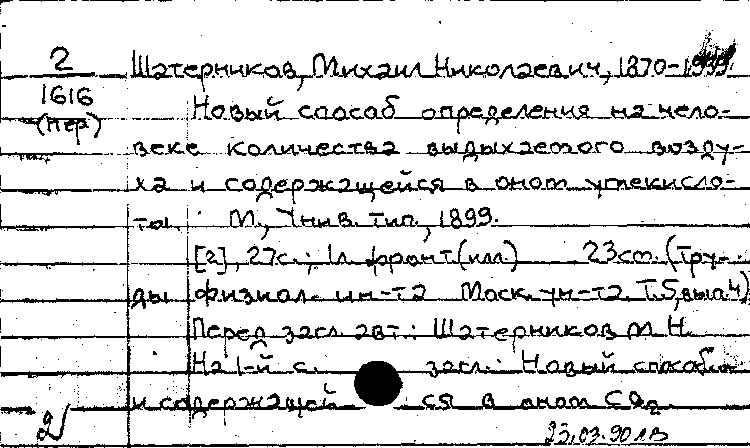 2
1616
(пер)
Шатерников, Михаил Николаевич, 1870-1939.
Новый способ определения на чело-
веке количества выдыхаемого возду-
ха и содержащейся в оном углекисло-
ты. М., Унив. тип., 1899.
[2], 27с.; 1л. фронт.(илл.) 23см. (Тру-
ды физиол. ин-та Моск. ун-та. Т.5, вып.4)
Перед загл. авт.: Шатерников М.Н.
На 1-й с. загл.: Новый способ...
и содержащей ся в оном CO₂.
2
23.03.90